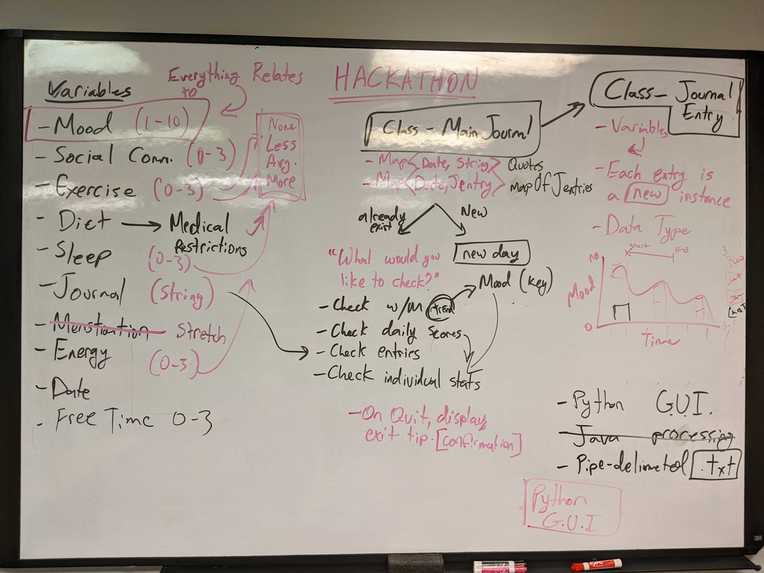 Variables
Everything Relates
to
- Mood (1-10)
- Social Comm. (0-3)
- Exercise (0-3)
- Diet → Medical
Restrictions
- Sleep (0-3)
- Journal (String)
- Menstruation - Stretch
- Energy (0-3)
- Date
- Free Time 0-3
None
Less
Avg.
More
HACKATHON
Class - Main Journal
- Map <Date, String> Quotes
- Map <Date, Jentry> Map Of Jentries
already
exist
New
new day
"What would you
like to check?"
Mood (key)
- Check w/m
- Check daily scores
- Check entries
- Check individual stats
- On Quit, display
exit tip. [confirmation]
Class - Journal
Entry
- Variables
- Each entry is
a new instance
- Data Type
Mood
Time
- Python G.U.I.
- Java processing
- Pipe-delimeted .txt
Python
G.U.I